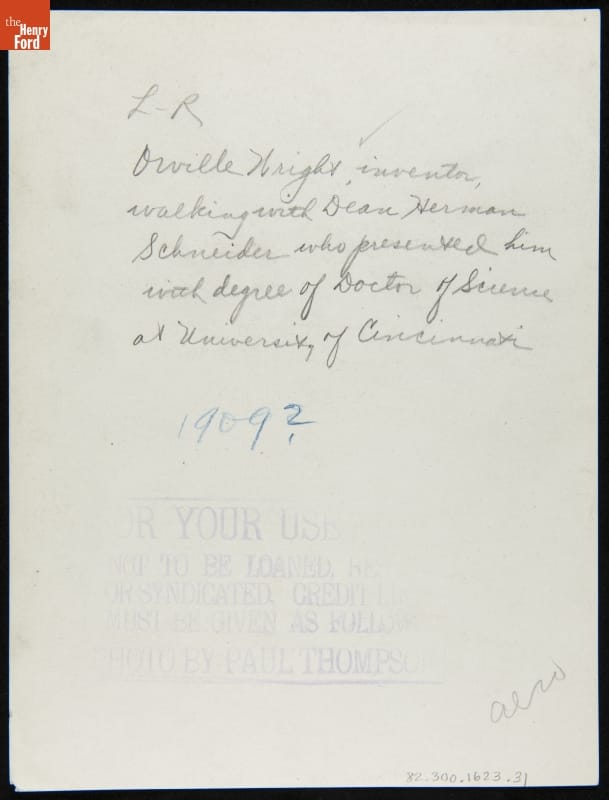 the
Henry
Ford
L-R
Orville Wright, inventor,
walking with Dean Herman
Schneider who presented him
with degree of Doctor of Science
at University of Cincinnati
1909?
OR YOUR USE
NOT TO BE LOANED, RE
OR SYNDICATED. CREDIT LI
MUST BE GIVEN AS FOLLOW
PHOTO BY PAUL THOMPSO
aero
82.300.1623.31